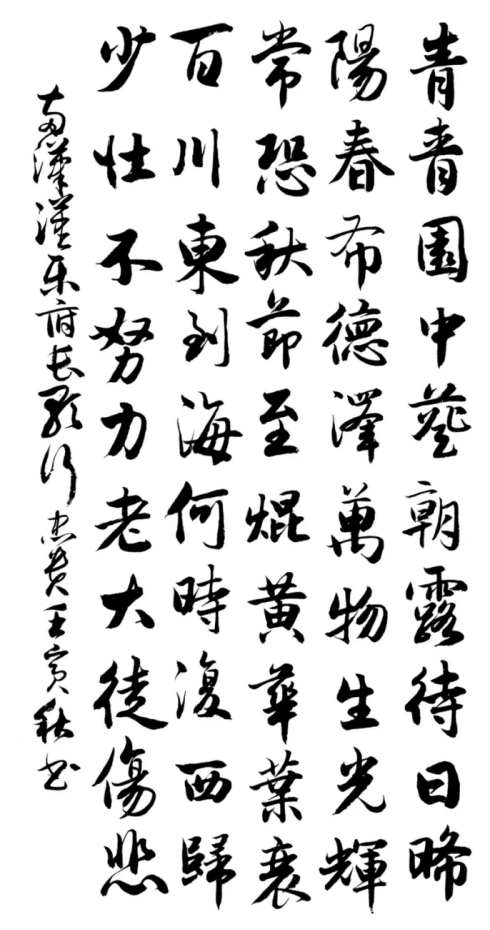 青青園中葵朝露待日晞
陽春布德澤萬物生光輝
常恐秋節至焜黄華葉衰
百川東到海何時復西歸
少壯不努力老大徒傷悲
两漢漢乐府长歌行忠贵壬寅秋书